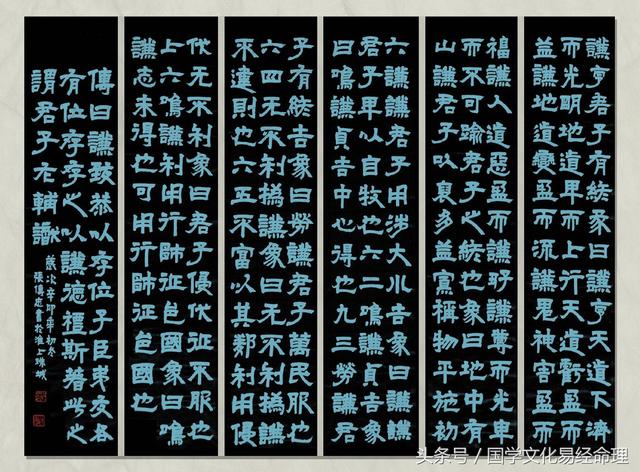 謙亨君子有終彖曰謙亨天道下濟
而光明地道卑而上行天道虧盈而
益謙地道變盈而流謙鬼神害盈而
福謙人道惡盈而好謙謙尊而光卑
而不可踰君子之終也象曰地中有
山謙君子以裒多益寡稱物平施初
六謙謙君子用涉大川吉象曰謙謙
君子卑以自牧也六二鳴謙貞吉象
曰鳴謙貞吉中心得也九三勞謙君
子有終吉象曰勞謙君子萬民服也
六四无不利撝謙象曰无不利撝謙
不違則也六五不富以其鄰利用侵
伐无不利象曰君子侵伐征不服也
上六鳴謙利用行師征邑國象曰鳴
謙志未得也可用行師征邑國也
傳曰謙致恭以存位子臣夷交各
有位存存心以謙德禮斯著此之
謂君子輔
歲次辛卯年初冬
張書於淮上
头条号／国学文化易经命理